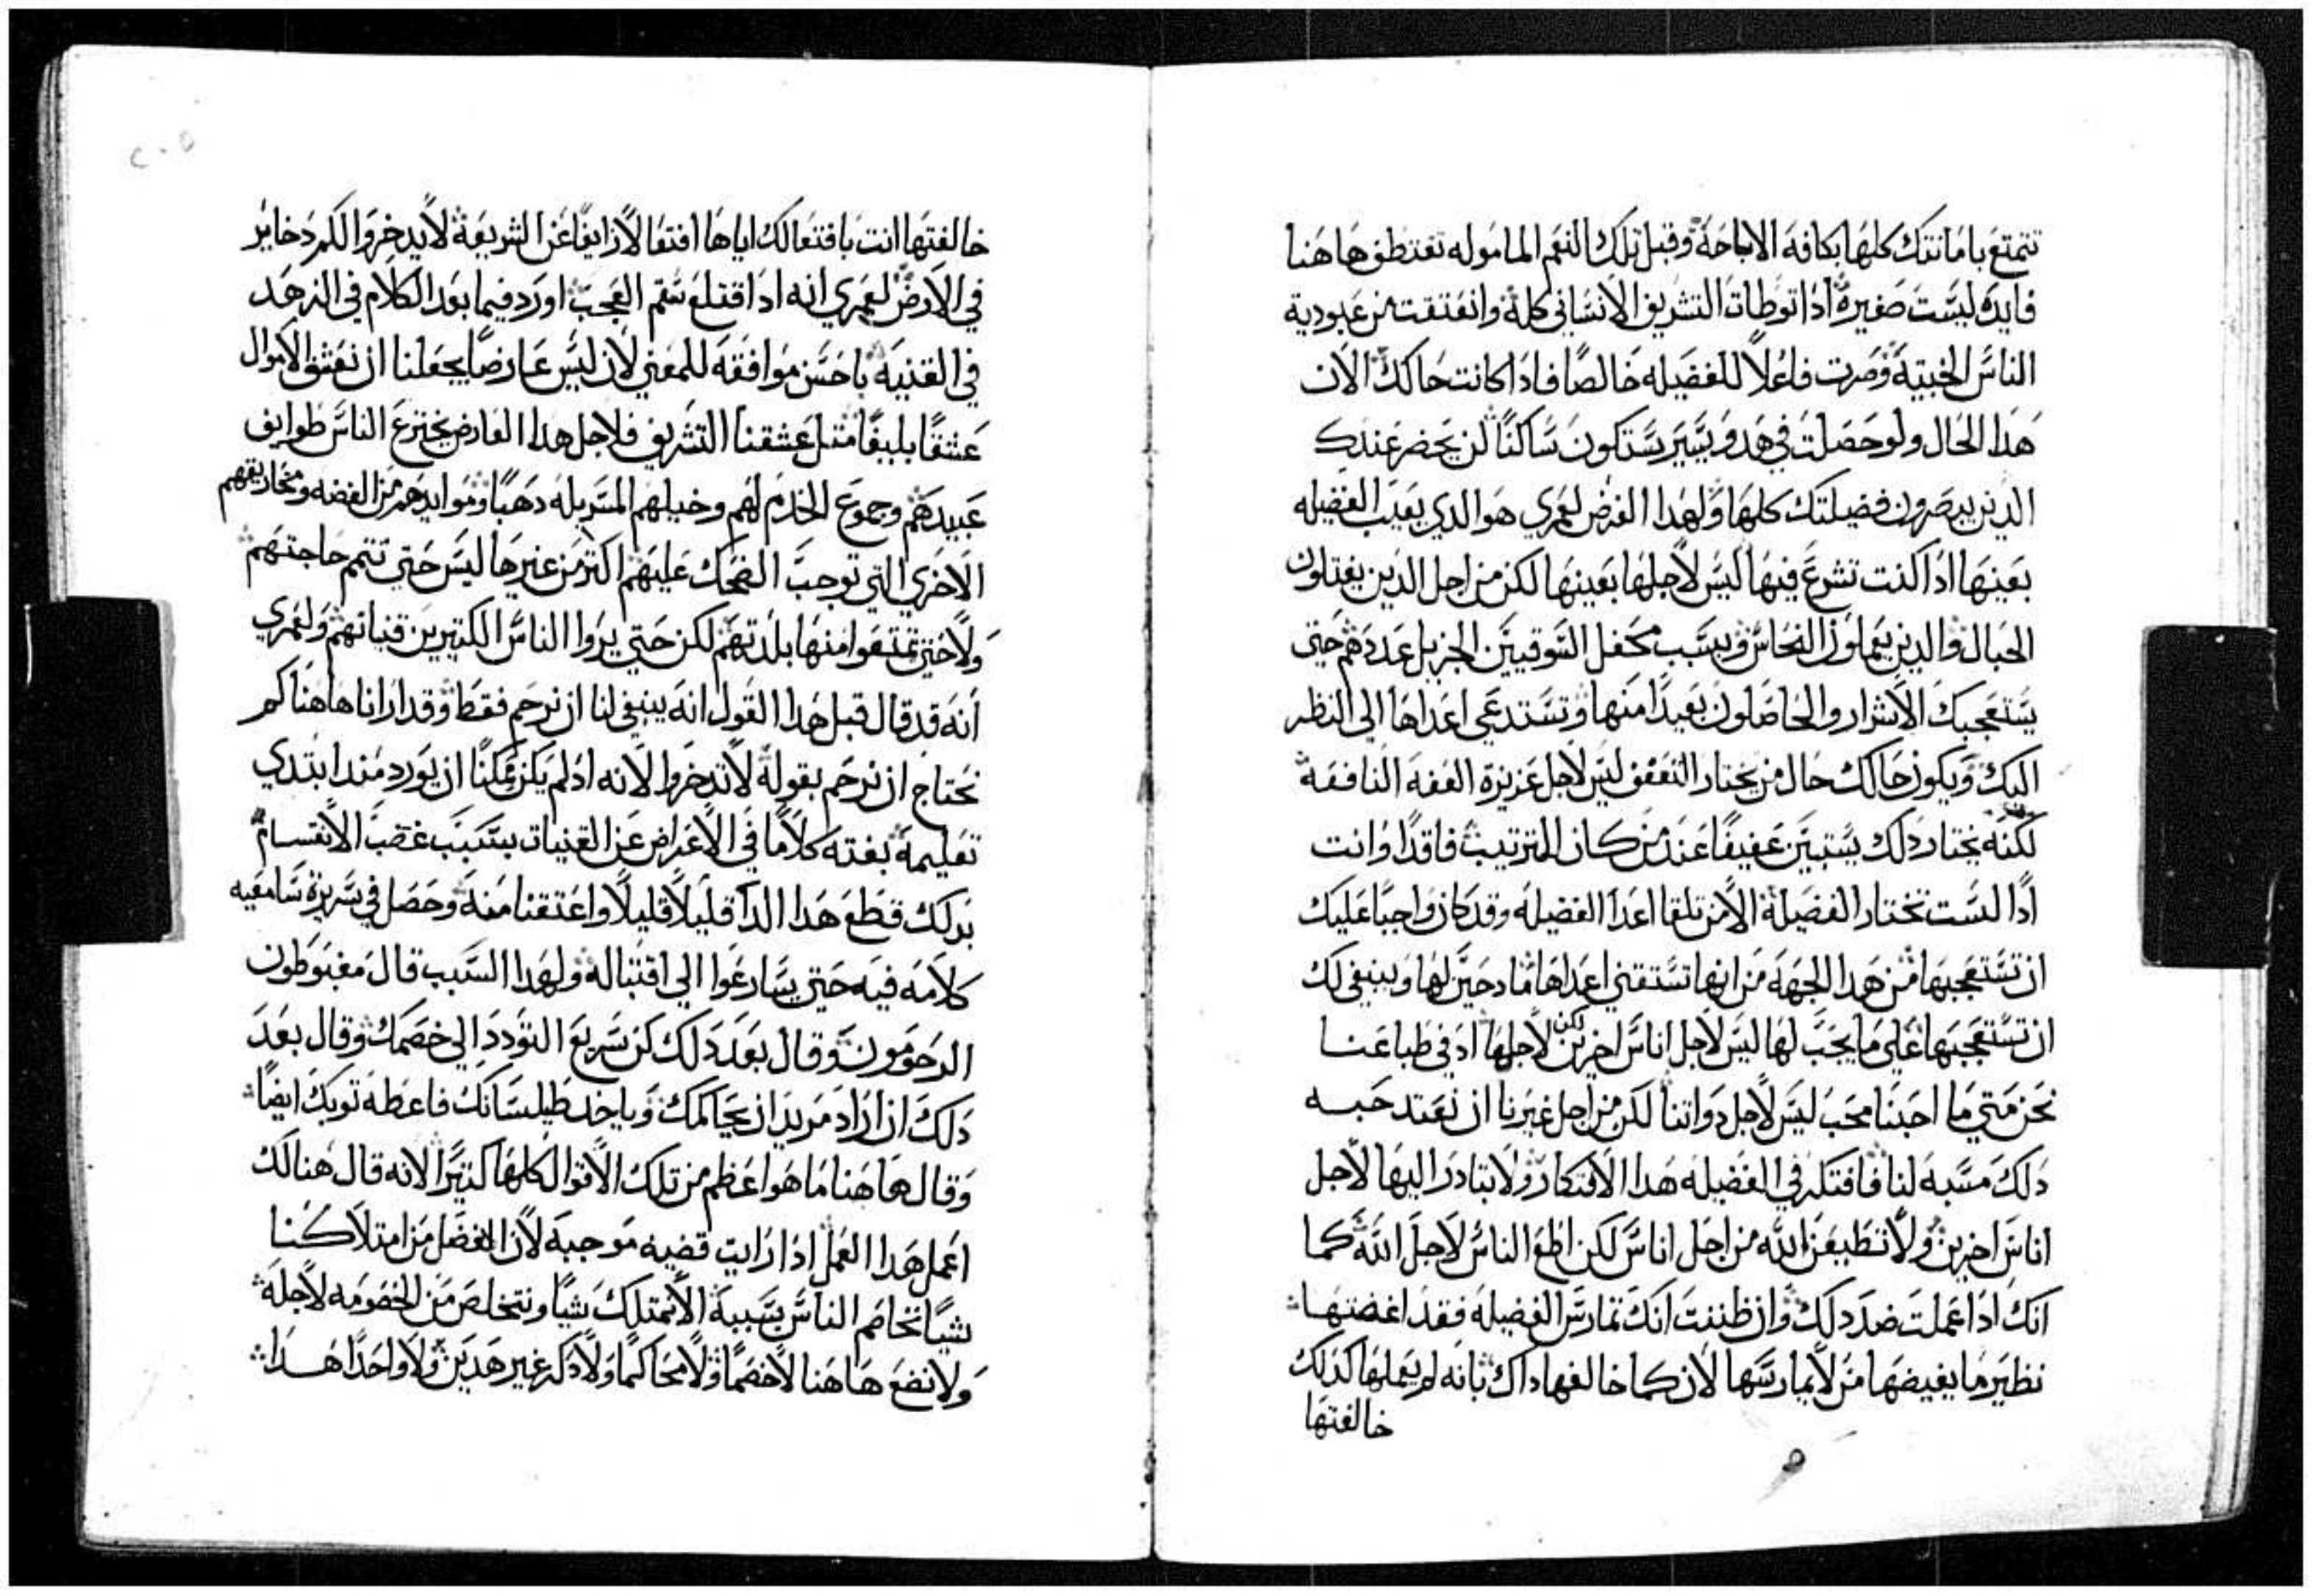 تتمتع بامانتك كلها بكافة الاباحة وقبل تلك النعم الماموله تغتطف هاهنا
فايده ليست صغيرة اذا توطات التشريف الانساني كله وانعتقت من عبودية
الناس الخبيثة وصرت فاعلا للفضيله خالصا فاذا كانت حالك الان
هذا الحال ولو حصلت في هدو يسير ستكون ساكنا لن يحضر عندك
الذين يبصرون فضيلتك كلها ولهذا الغرض لعمري هو الذي يعيب الفضيله
بعينها اذا كنت تشرع فيها ليس لاجلها بعينها لكن من اجل الذين يفتلون
الحبال والذين يعملون النحاس وبسبب محفل السوقيين الجزيل عددهم حتي
يستعجبك الاشرار والحاصلون بعيدا منها وتستدعي اعداها الي النظر
اليك ويكون حالك حال من يختار التعفف ليس لاجل غزيرة العفه النافعة
لكنه يختار ذلك يستبين عفيفا عند من كان للترتيب فاقدا وانت
اذا لست تختار الفضيلة الا من تلقا اعدا الفضيله وقد كان واجبا عليك
ان تستعجبها من هذا الجهه من انها تستقني اعداها مادحين لها وينبغي لك
ان تستعجبها علي ما يجب لها ليس لاجل اناس اخرين لكن لاجلها اذ في طباعنا
نحن متي ما احبنا محب ليس لاجل ذواتنا لكن من اجل غيرنا ان نعتد حبه
ذلك مسبه لنا فافتكر في الفضيله هذا الافتكار ولا تبادر اليها لاجل
اناس اخرين ولا تطيعن الله من اجل اناس لكن اطع الناس لاجل الله كما
انك اذا عملت ضد ذلك وان ظننت انك تمارس الفضيله فقد اغضتها
نظير ما يغيضها من لا يمارسها لان كما خالفها ذاك بانه لم يعملها كذلك
خالفتها
خالفتها انت بافتعالك اياها افتعالا زايفا عن الشريعة لا يدخروا لكم دخاير
في الارض لعمري انه اذا اقتلع سقم العجب اورد فيما بعد الكلام في الزهد
في القنيه باحسن موافقه للمعني لان ليس عارضا يجعلنا ان نعشق الاموال
عشقا بليغا مثل عشقنا التشريف فلاجل هذا العارض يخترع الناس طوايف
عبيدهم وجموع الخدم لهم وخيلهم المسربله دهبا وموايدهم من الفضه ومخاريقهم
الاخري التي توجب الضحك عليهم اكثر من غيرها ليس حتي تتم حاجتهم
ولا حتي تمتعوا منها بلدتهم لكن حتي يروا الناس الكثيرين قنياتهم ولعمري
انه قد قال قبل هذا القول انه ينبغي لنا ان نرحم فقط وقد ارانا هاهنا كم
نحتاج ان نرحم بقوله لا تدخروا لانه اذ لم يكن ممكنا ان يورد منذ ابتدي
تعليمة بغته كلاما في الاعراض عن القنيات بسبب غصب الانقسام
بذلك قطع هذا الدا قليلا قليلا واعتقنا منه وحصل في سريرة سامعيه
كلامه فيه حتي يسارعوا الي اقتباله ولهذا السبب قال مغبوطون
الرحومون وقال بعد ذلك كن سريع التودد الي خصمك وقال بعد
ذلك ان اراد مريد ان يحاكمك وياخد طيلسانك فاعطه توبك ايضا
وقال هاهنا ما هو اعظم من تلك الاقوال كلها كثيرا لانه قال هنالك
اعمل هذا العمل اذا رايت قضيه موجبه لان الافضل من امتلاكنا
شيا نخاصم الناس بسببه الا نمتلك شيا ونتخلص من الخصومه لاجله
ولا نضع هاهنا لا خصما ولا محاكما ولا ذكر غير هذين ولا واحدا هذا